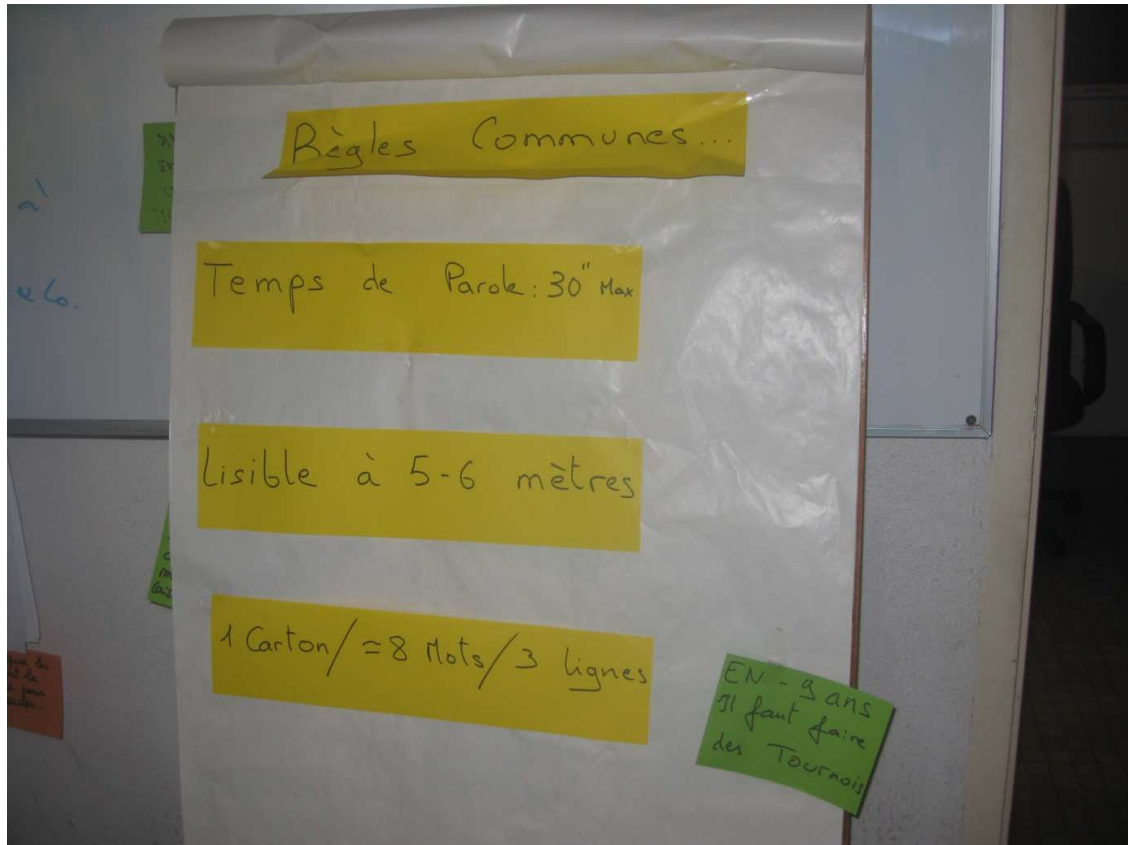 Règles Communes...
Temps de Parole : 30" Max
Lisible à 5-6 mètres
1 Carton/=8 Mots/3 lignes
EN - 9 ans
Il faut faire
des Tournois
à